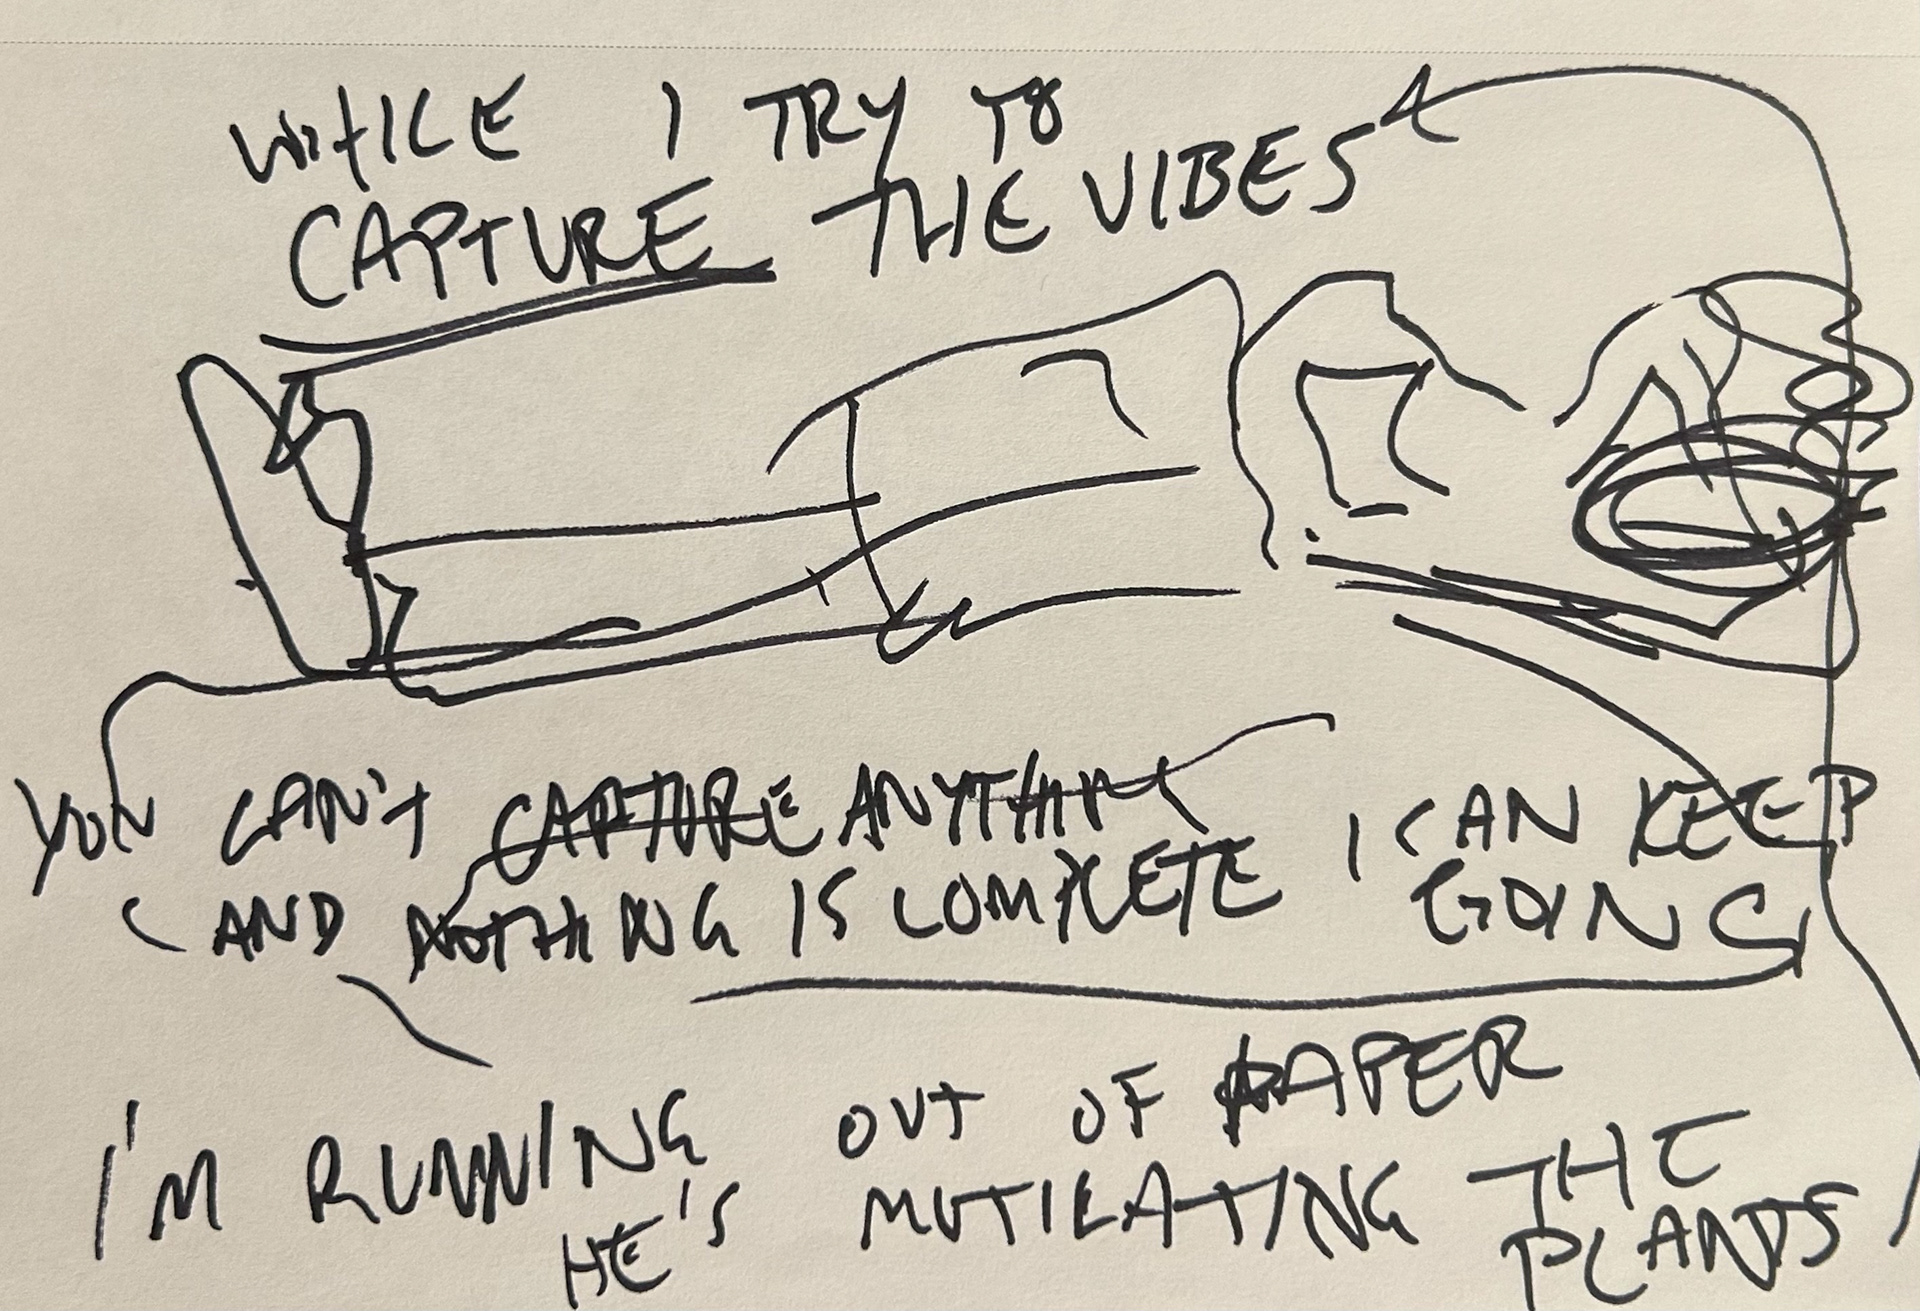 WHILE I TRY TO
CAPTURE THE VIBES
YOU CAN'T CAPTURE ANYTHING I CAN KEEP
AND NOTHING IS COMPLETE GOING
I'M RUNNING OUT OF PAPER
HE'S MUTILATING THE
PLANTS